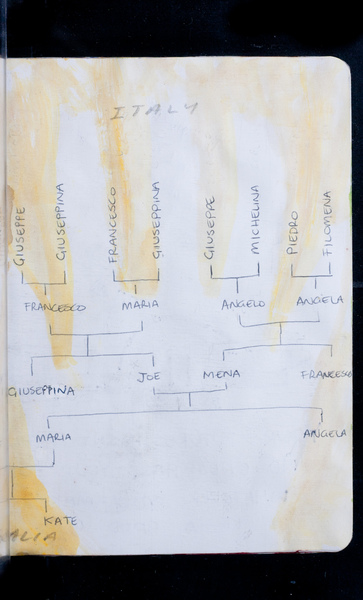 ITALY
GIUSEPPE GIUSEPPINA FRANCESCO GIUSEPPINA GIUSEPPE MICHELINA PIEDRO FILOMENA
FRANCESCO MARIA ANGELO ANGELA
GIUSEPPINA JOE MENA FRANCESCO
MARIA ANGELA
KATE
ALIA